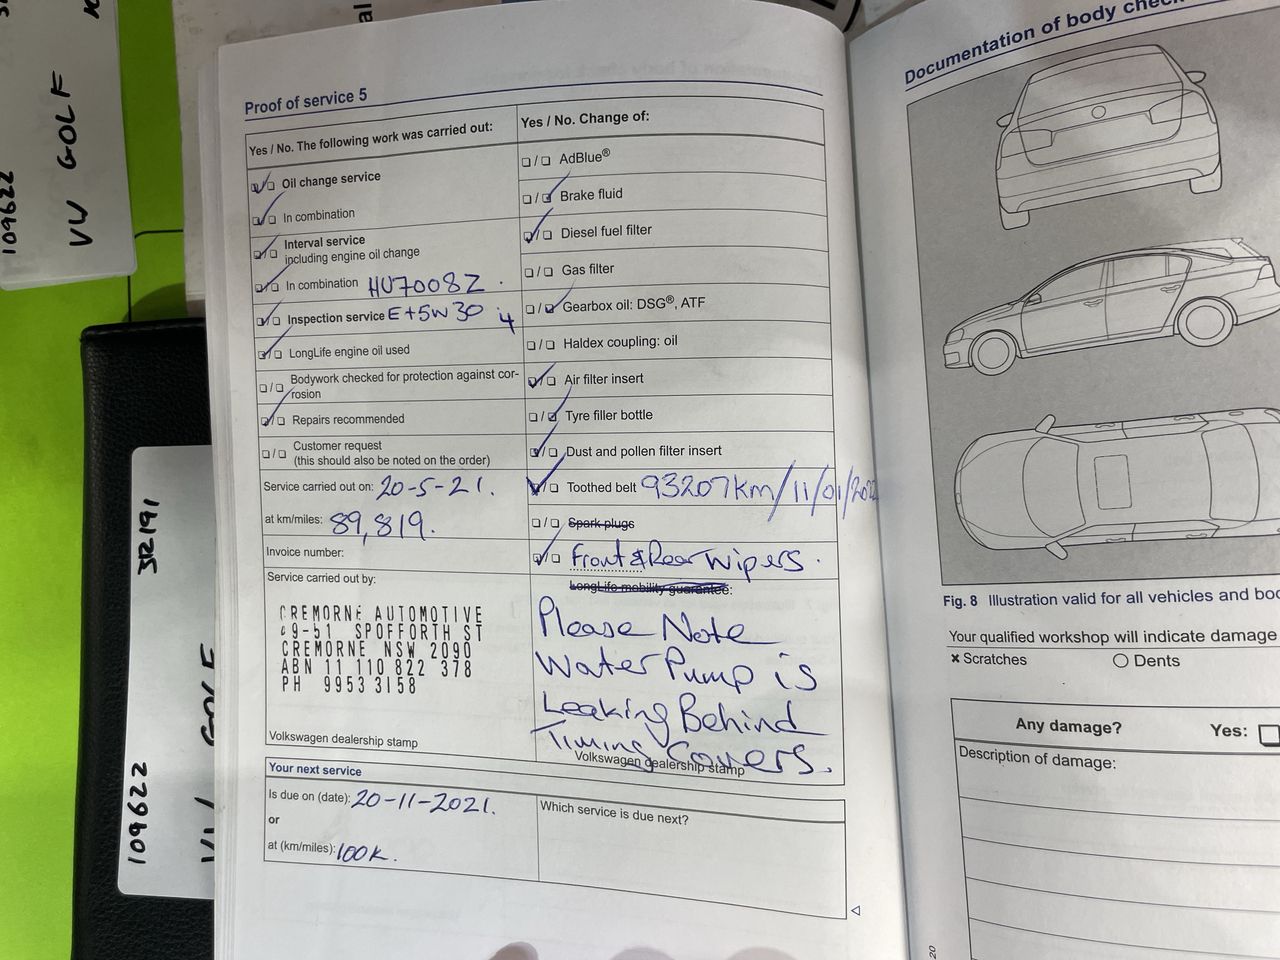 109622
VW GOLF
3R191
109622
VW GOLF
al
Proof of service 5
Yes / No. The following work was carried out:
Oil change service
In combination
Interval service
including engine oil change
In combination HU7008Z.
Inspection service E+5W30 i4
LongLife engine oil used
Bodywork checked for protection against cor-
rosion
Repairs recommended
Customer request
(this should also be noted on the order)
Service carried out on: 20-5-21.
at km/miles: 89,819.
Invoice number:
Service carried out by:
CREMORNE AUTOMOTIVE
49-51 SPOFFORTH ST
CREMORNE NSW 2090
ABN 11 110 822 378
PH 9953 3158
Volkswagen dealership stamp
Yes / No. Change of:
AdBlue®
Brake fluid
Diesel fuel filter
Gas filter
Gearbox oil: DSG®, ATF
Haldex coupling: oil
Air filter insert
Tyre filler bottle
Dust and pollen filter insert
Toothed belt 93207km/11/01/202
Spark plugs
Front & Rear Wipers.
LongLife mobility guarantee:
Please Note
Water Pump is
Leaking Behind
Timing Covers.
Volkswagen dealership stamp
Your next service
Is due on (date): 20-11-2021.
or
at (km/miles): 100K.
Which service is due next?
Documentation of body check
Fig. 8 Illustration valid for all vehicles and bod
Your qualified workshop will indicate damage
× Scratches
Dents
Any damage? Yes:
Description of damage:
20